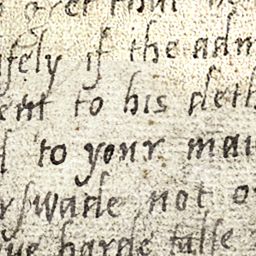 yet that
ſely if the adm
ent to his deth
to your mai
rſwade not o
ue harde falſe